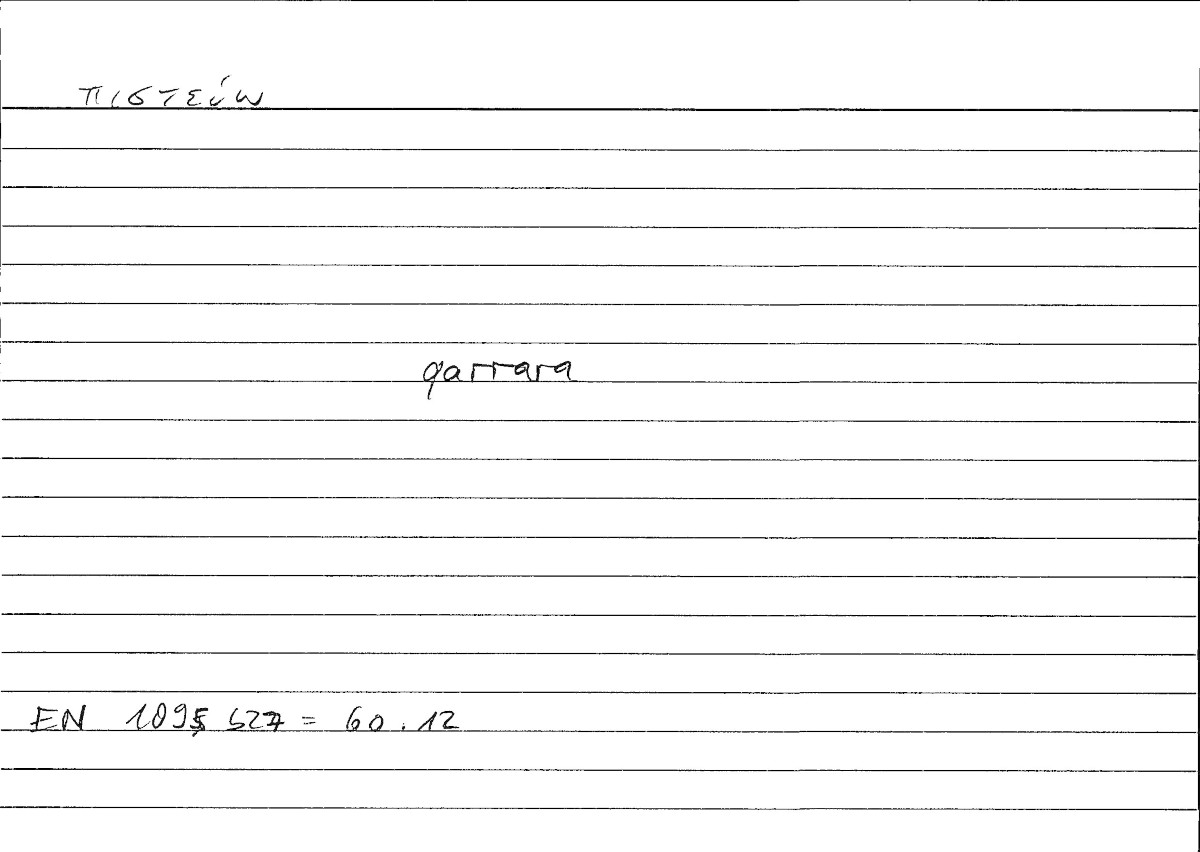 πιστεύω
qarrara
EN 1095 b27 = 60.12